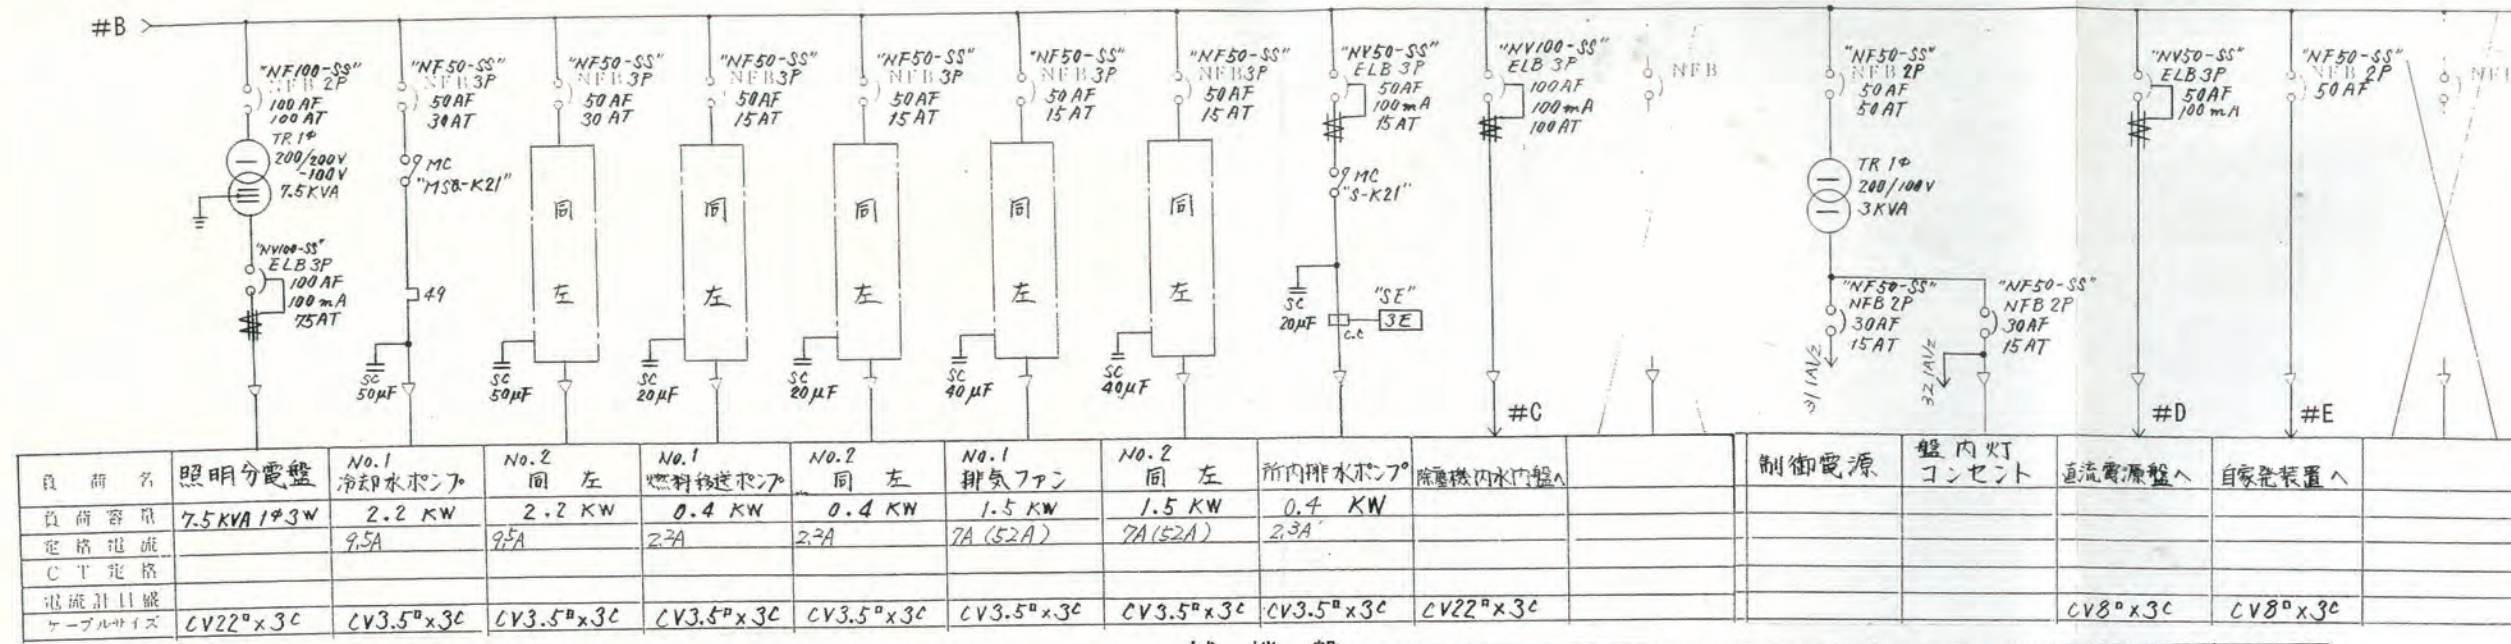 #B
"NF100-SS"
NFB 2P
100AF
100AT
TR 1Φ
200/200V
-100V
7.5KVA
"NV100-SS"
ELB 3P
100AF
100mA
75AT
"NF50-SS"
NFB 3P
50AF
30AT
MC
"MSO-K21"
49
SC
50μF
"NF50-SS"
NFB 3P
50AF
30AT
同
左
SC
50μF
"NF50-SS"
NFB 3P
50AF
15AT
同
左
SC
20μF
"NF50-SS"
NFB 3P
50AF
15AT
同
左
SC
20μF
"NF50-SS"
NFB 3P
50AF
15AT
同
左
SC
40μF
"NF50-SS"
NFB 3P
50AF
15AT
同
左
SC
40μF
"NV50-SS"
ELB 3P
50AF
100mA
15AT
MC
"S-K21"
SC
20μF
C.C
"SE"
3E
"NV100-SS"
ELB 3P
100AF
100mA
100AT
#C
NFB
"NF50-SS"
NFB 2P
50AF
50AT
TR 1Φ
200/100V
3KVA
"NF50-SS"
NFB 2P
30AF
15AT
311A1/2
"NF50-SS"
NFB 2P
30AF
15AT
321A1/2
"NV50-SS"
ELB 3P
50AF
100mA
#D
"NF50-SS"
NFB 2P
50AF
#E
NFB
負荷名 照明分電盤 No.1 冷却水ポンプ No.2 同左 No.1 燃料移送ポンプ No.2 同左 No.1 排気ファン No.2 同左 所内排水ポンプ 除塵機内水内盤へ 制御電源 盤内灯コンセント 直流電源盤へ 自家発装置へ
負荷容量 7.5KVA 1Φ3W 2.2KW 2.2KW 0.4KW 0.4KW 1.5KW 1.5KW 0.4KW
定格電流 9.5A 9.5A 2.3A 2.3A 7A(52A) 7A(52A) 2.3A
CT定格
電流計目盛
ケーブルサイズ CV22□×3C CV3.5□×3C CV3.5□×3C CV3.5□×3C CV3.5□×3C CV3.5□×3C CV3.5□×3C CV3.5□×3C CV22□×3C CV8□×3C CV8□×3C